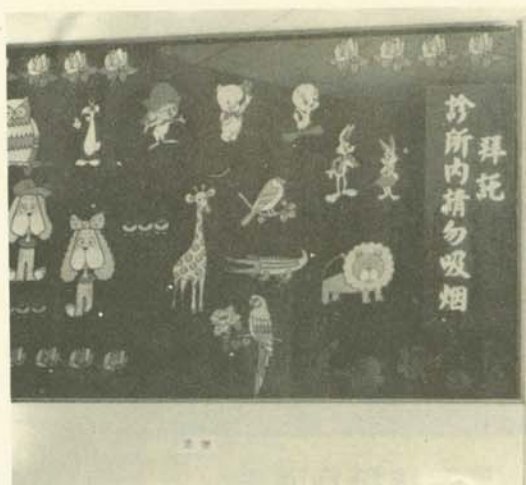 拜託
診所內請勿吸烟